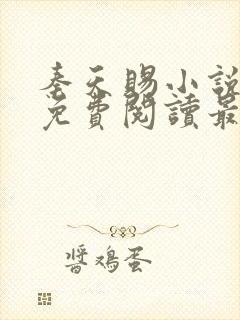 奉天賜小説
免費閱讀最
醬鸡蛋